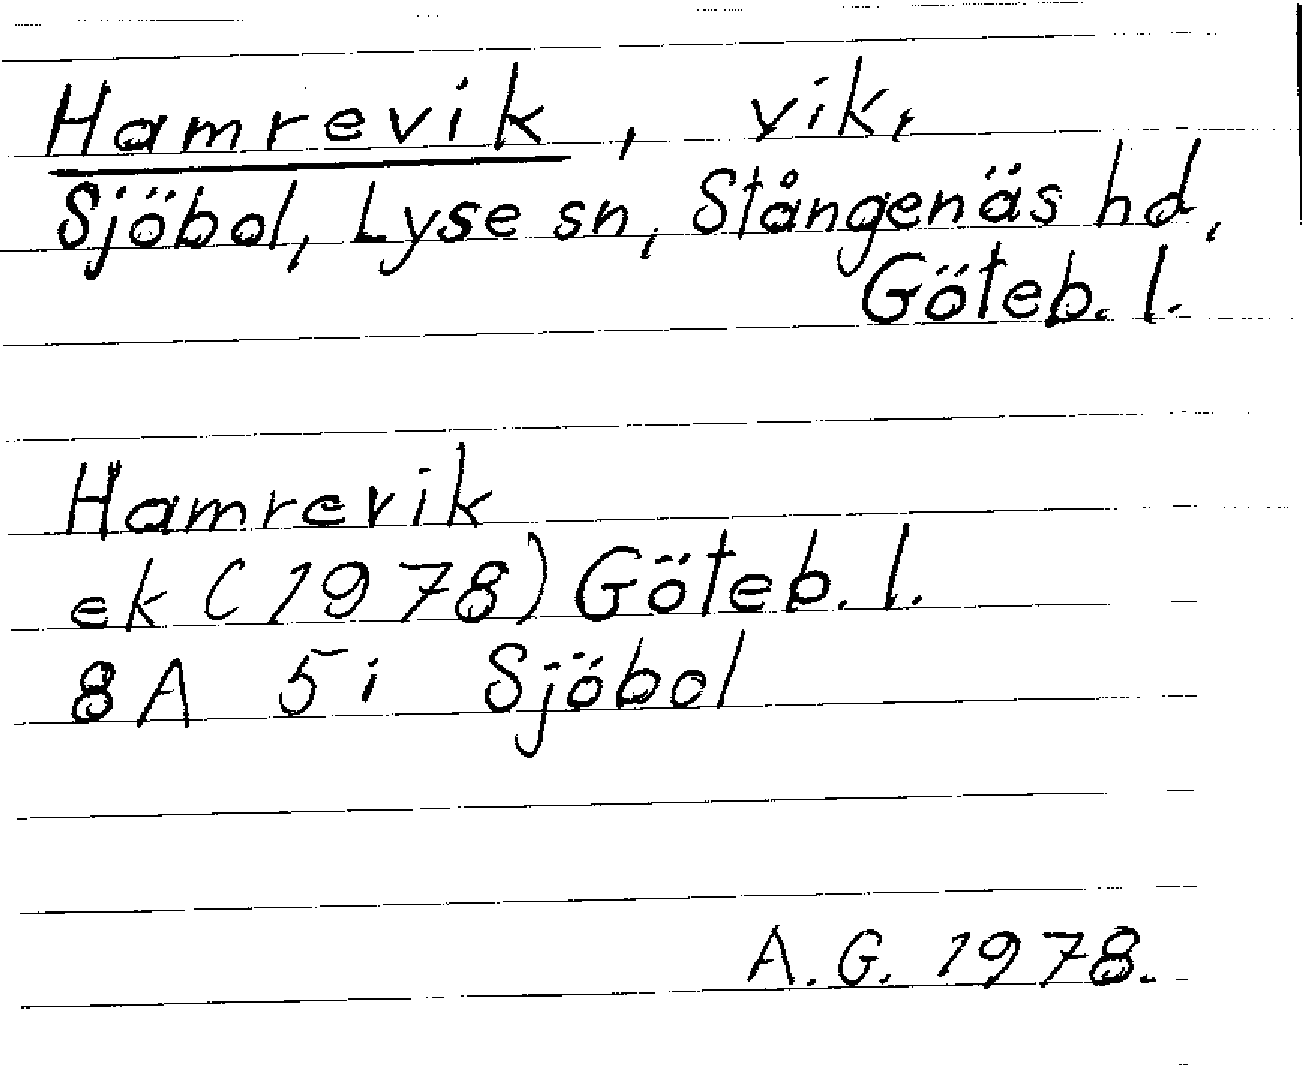 Hamrevik, vik,
Sjöbol, Lyse sn, Stångenäs hd,
Göteb. l.
Hamrevik
ek (1978) Göteb. l.
8A 5i Sjöbol
A. G. 1978.